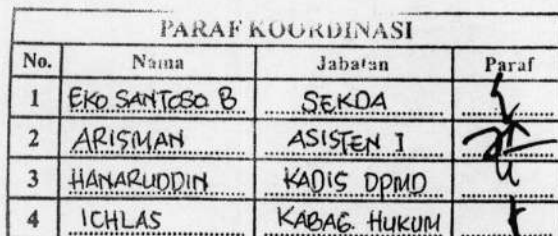 PARAF KOORDINASI
No. Nama Jabatan Paraf
1 EKO SANTOSO B SEKDA
2 ARISMAN ASISTEN I
3 HANARUDDIN KADIS DPMD
4 ICHLAS KABAG. HUKUM